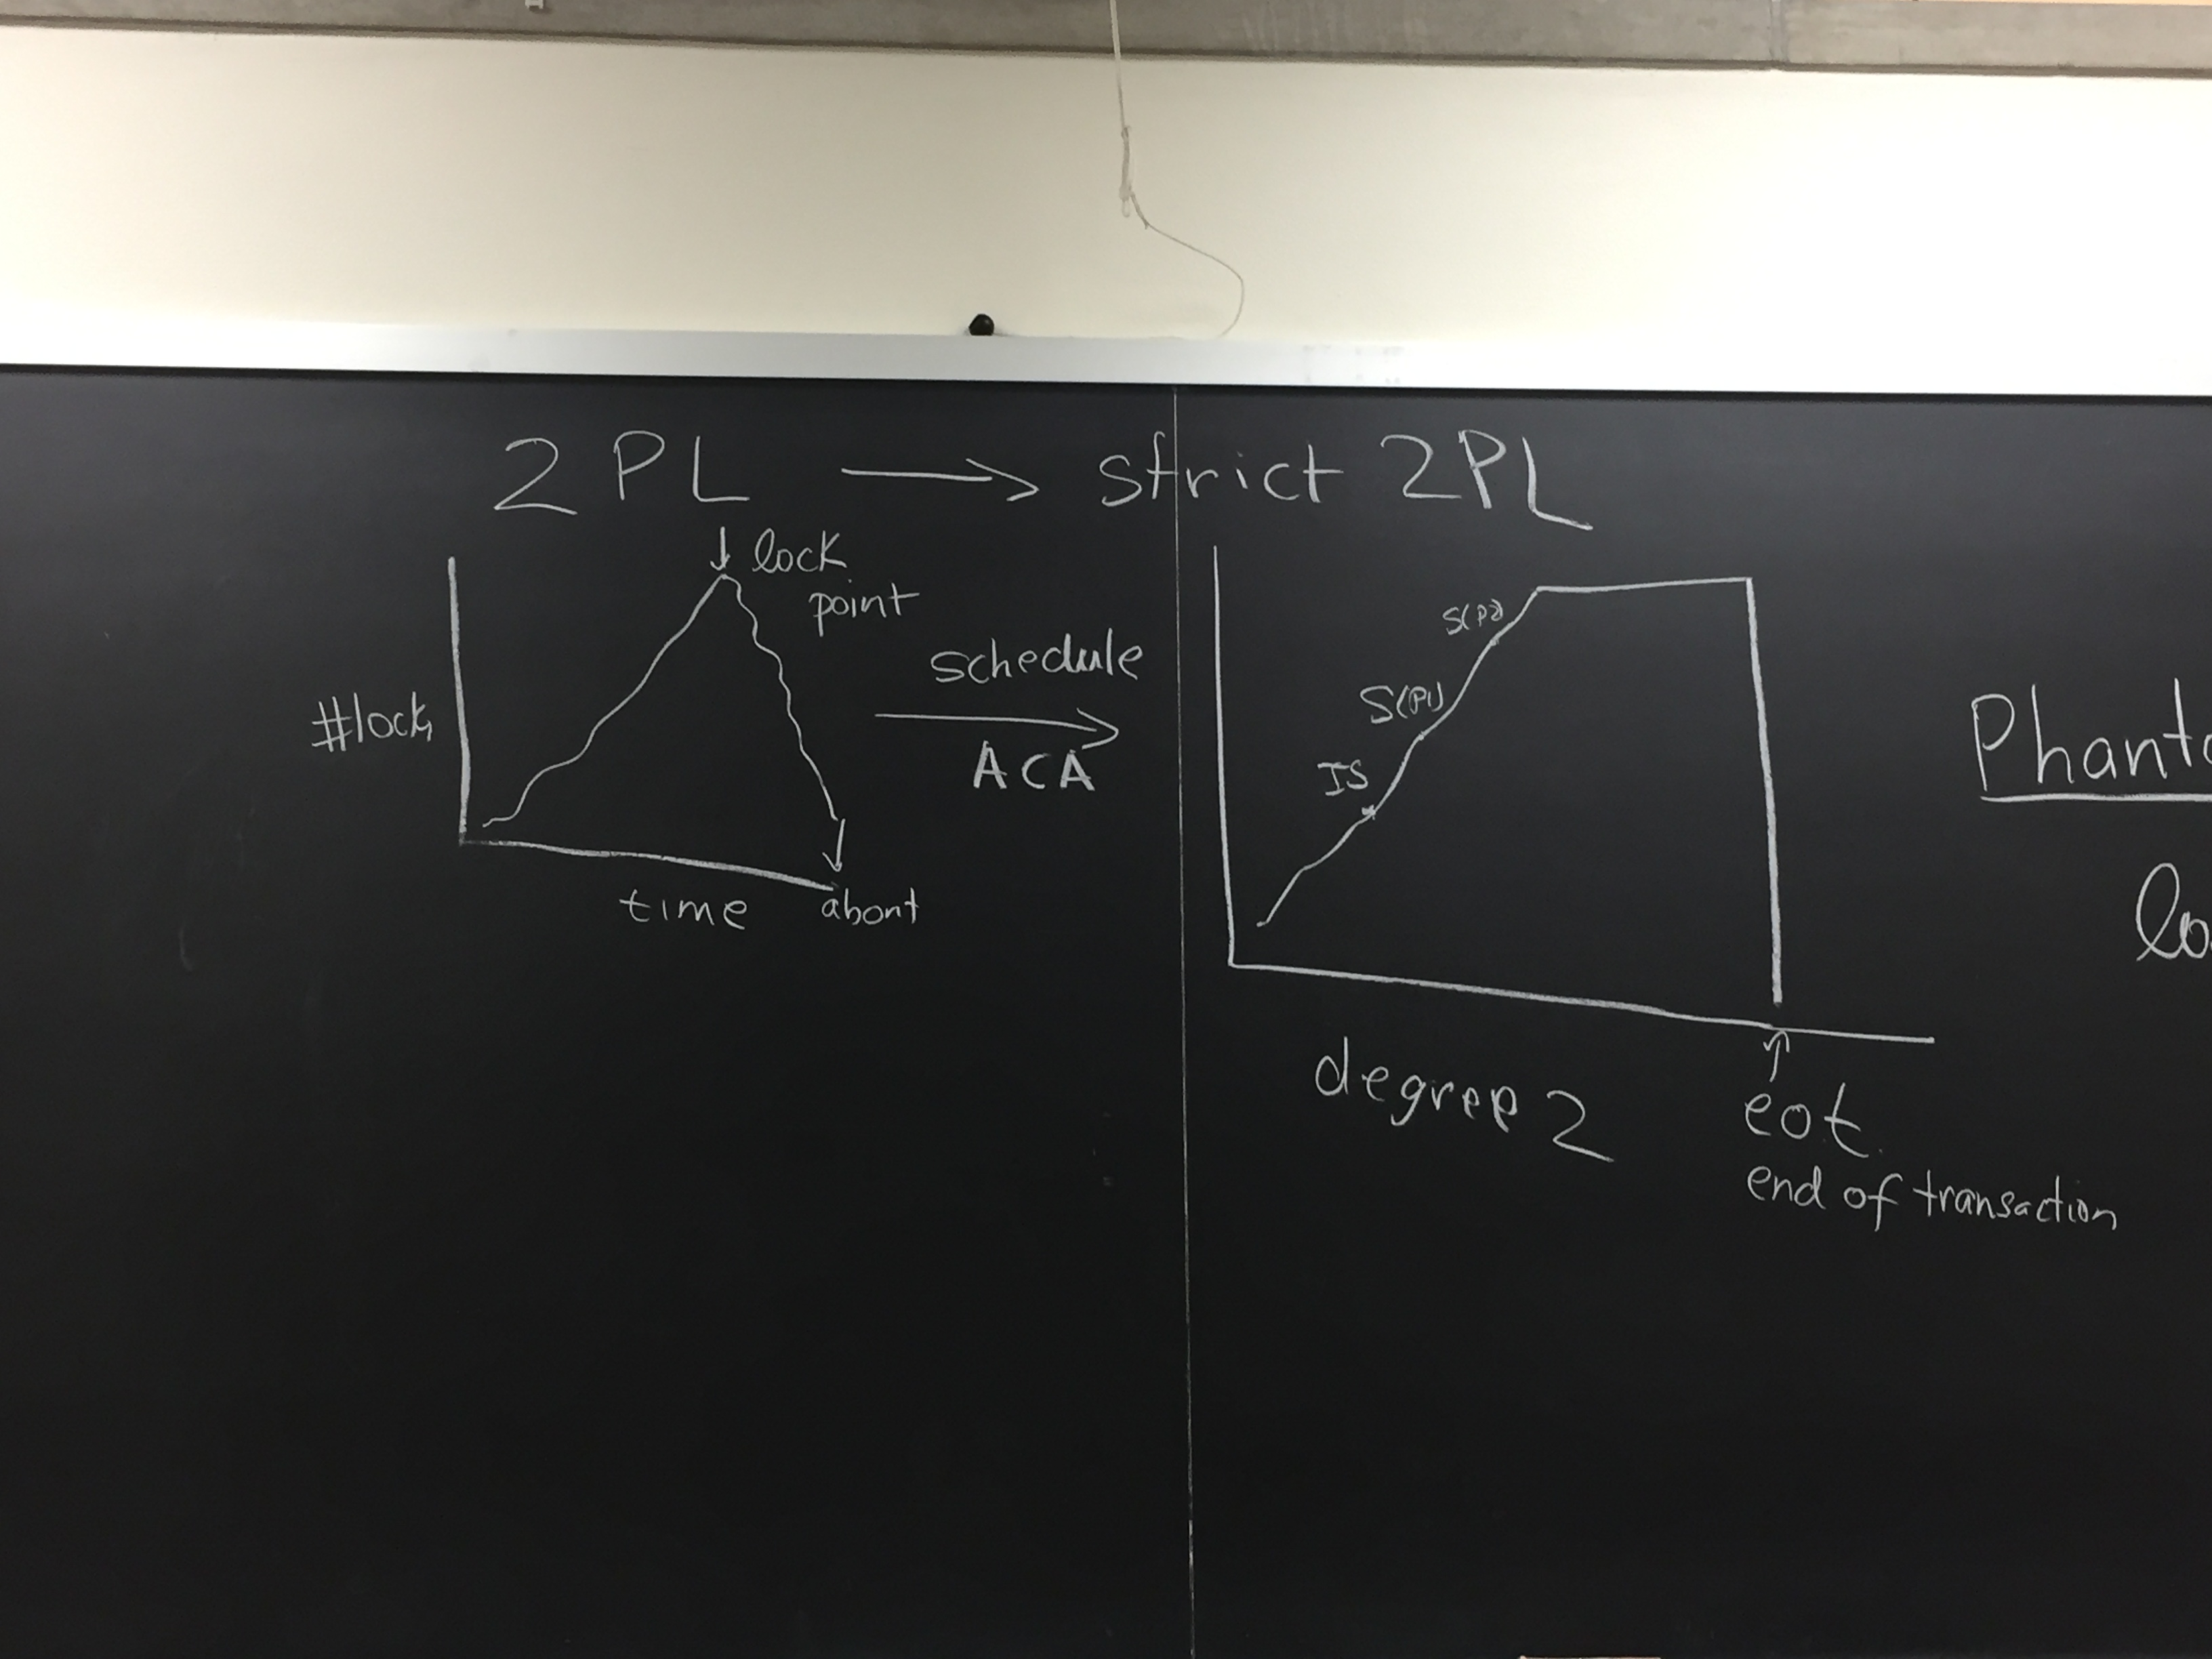 2PL → strict 2PL
↓ lock
point
#lock
time
abont
schedule
ACA
S(P2)
S(P1)
IS
degree 2
eot.
end of transaction
Phanto
lo